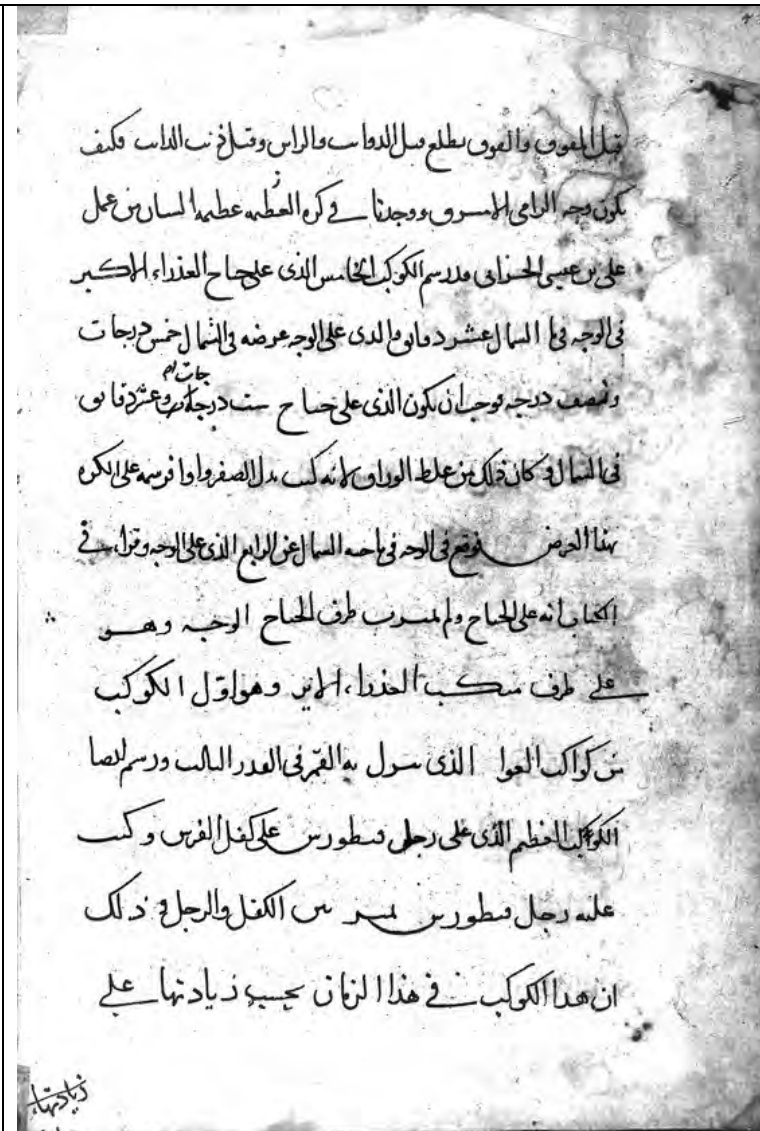 قبل الفوق والفوق يطلع قبل الذوائب والراس وقبل ذنب الذايب فكيف
يكون وجه الرامى الى المشرق ووجدنا فى كرة العظيمة عظيمة الشان من عمل
على بن عيسى الحرانى قد رسم الكوكب الخامس الذى على جناح العذراء الاكبر
فى الوجه فى الشمال عشر دقائق والذى على الوجه عرضه فى الشمال خمس درجات
ونصف درجة فوجب ان يكون الذى على جناح ست درجات وعشر دقائق
فى الشمال وكان ذلك من غلط الوراق لانه كتب بدل الصفر واوا فرسمه على الكرة
بهذا العرض فوقع فى الوجه فى ناحية الشمال عن الرابع الذى على الوجه وقرأ فى
الكتاب انه على الجناح ولم طرف الجناح الوجه وهو
على طرف منكب العذراء الايسر وهو اول الكوكب
من كواكب العوا الذى ينزل به القمر فى القدر الثالث ورسم ايضا
الكوكب العظيم الذى على رجل قنطورس على كفل الفرس وكتب
عليه رجل قنطورس بين الكفل والرجل فى ذلك
ان هذا الكوكب فى هذا الزمان بحسب زيادتها على
زيادتها